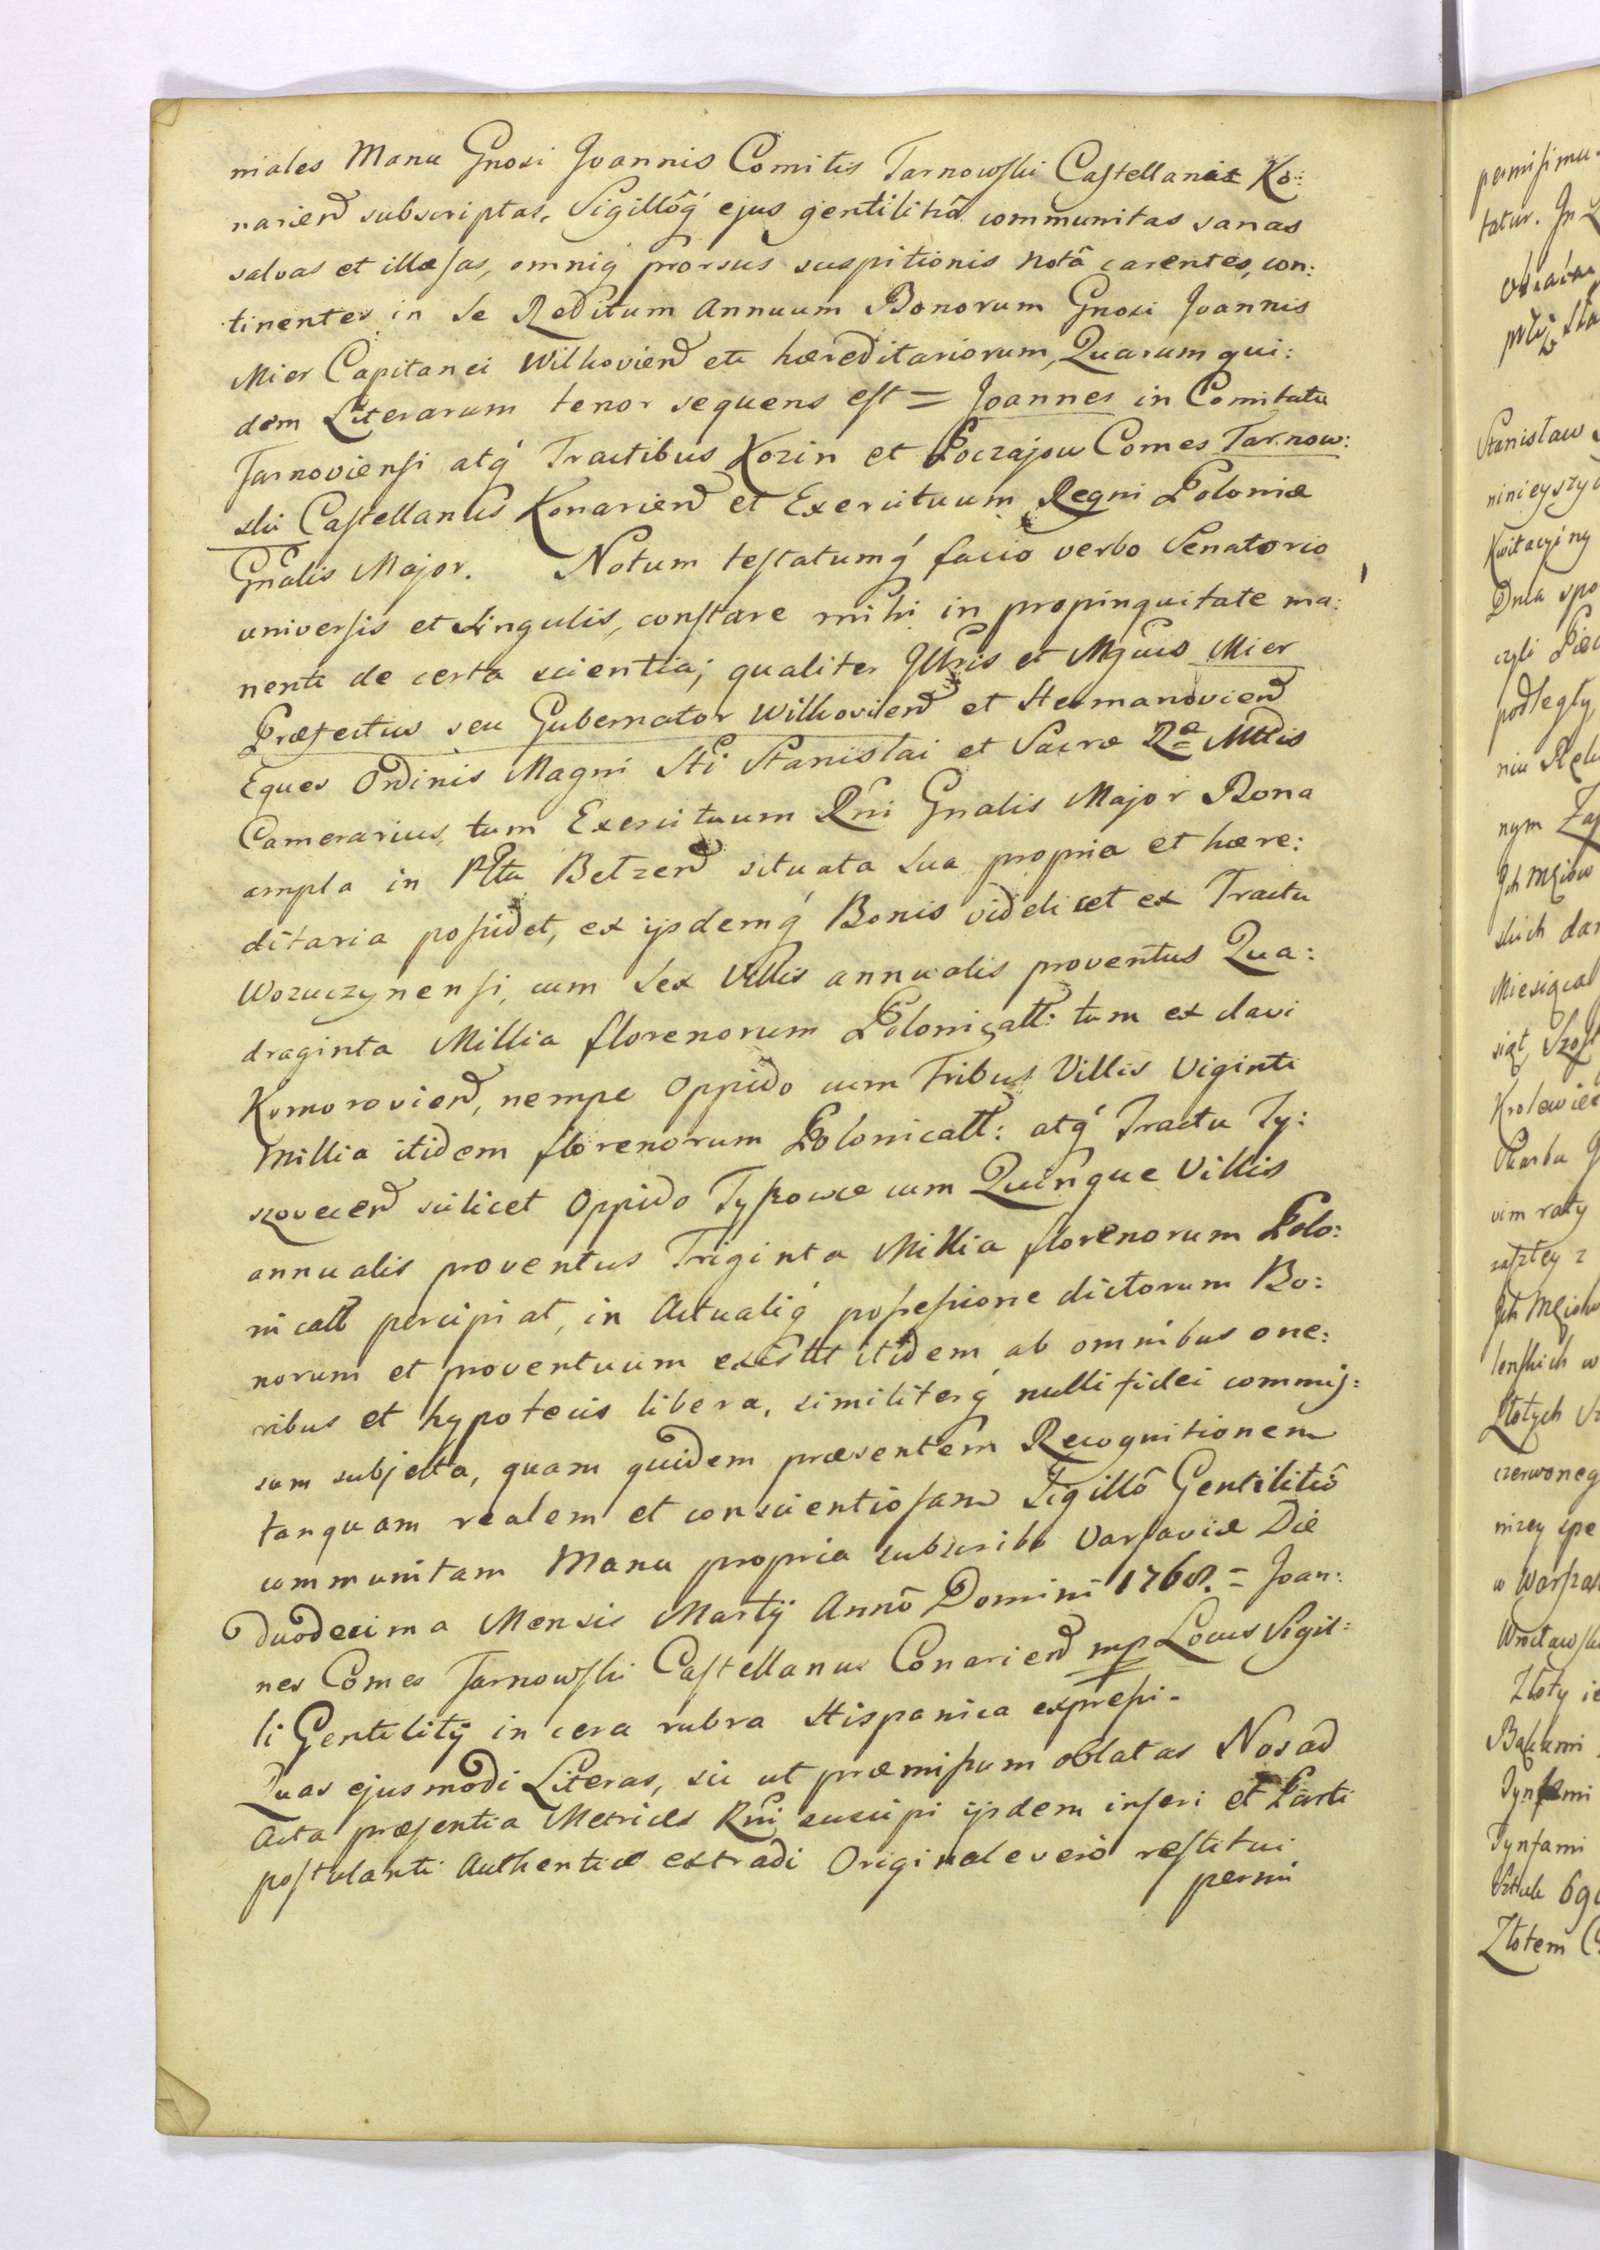 niales Manu Gnosi Joannis Comitis Tarnowski Castellani Ko:
narien subscriptas, Sigillôq́ ejus gentilitiô communitas sanas
salvas et illæsas, omniq́ prorsus suspitionis notâ carentes, con:
tinentes in se Reditum Annuum Bonorum Gnosi Joannis
Mier Capitanei Wilkovien etc hæreditariorum, Quarum qui:
dem Literarum tenor sequens est = Joannes in Comitatu
Tarnoviensi atq́ Tractibus Kozin et Poczajow Comes Tarnow:
ski Castellanus Konarien et Exercituum Regni Poloniæ
Gnalis Major. Notum testatumq́ facio verbo Senatorio
universis et singulis, constare mihi in propinquitate ma:
nenti de certa scientia; qualiter Illris et Mgcus Mier
Præfectus seu Gubernator Wilkovien et Hermanovien
Eques Ordinis Magni Sti Stanislai et Sacræ Ræ Mttis
Camerarius, tum Exercituum Rni Gnalis Major Bona
ampla in Pltu Betzen situata sua propria et hære:
ditaria possidet, ex ijsdemq́ Bonis videlicet ex Tractu
Wozuczynensi, cum sex Villis annualis proventus Qua:
draginta Millia florenorum Polonicall: tum ex clavi
Komorovien, nempe Oppido cum Tribus Villis Viginti
Millia itidem florenorum Polonicall: atq́ Tractu Ty:
szovecen scilicet Oppido Tyszowce cum Quinque Villis
annualis proventus Triginta Millia florenorum Polo:
nicall percipiat, in Actualiq́ possessione dictorum Bo:
norum et proventuum existit itidem ab omnibus one:
ribus et hypotecis libera, similiterq́ nulli fidei commis:
sum subjecta, quam quidem præsentem Recognitionem
tanquam realem et conscientiosam Sigillô Gentilitiô
communitam Manu propria subscribo Varsaviæ Die
duodecima Mensis Martij Annô Domini 1768. = Joan:
nes Comes Tarnowski Castellanus Conarien mp Locus Sigil:
li Gentilitij in cera rubra Hispanica expressi -
Quas ejusmodi Literas, sic ut præmissum oblatas Nos ad
Acta præsentia Metrices Rni suscipi ijsdem inseri et Parti
postulanti Authentice extradi Originale vero restitui
permi
permisimu
tatur. In
Stanisław
ninieyszy
Kwitacyiny
Dnia
czyli
podległy
niu
nym
skich
Miesiąca
Krolewie
Skarbu
vim raty
zaszłey z
lenskich w
Złotych
czerwoneg
nizey spe
w Warsza
Wrocławski
Złoty ie
Bąkami
Tynfami
Tynfami
Sztuk 69
Złotem